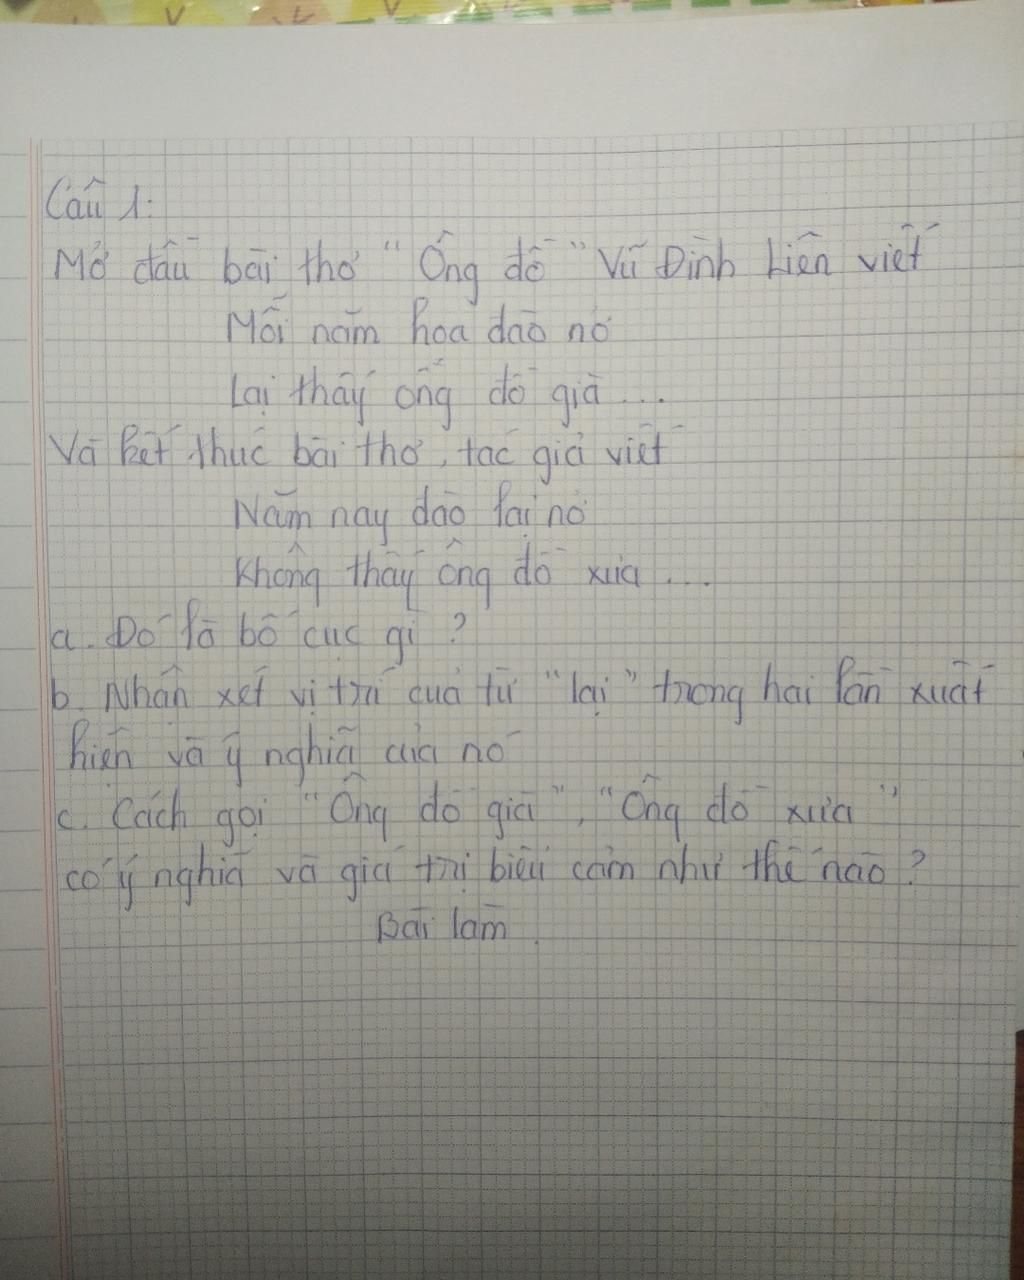 Câu 1:
Mở đầu bài thơ "Ông đồ" Vũ Đình Liên viết
Mỗi năm hoa đào nở
Lại thấy ông đồ già ...
Và kết thúc bài thơ, tác giả viết
Năm nay đào lại nở
Không thấy ông đồ xưa ...
a. Đó là bố cục gì ?
b. Nhận xét vị trí của từ "lại" trong hai lần xuất
hiện và ý nghĩa của nó
c. Cách gọi "Ông đồ già", "Ông đồ xưa"
có ý nghĩa và giá trị biểu cảm như thế nào ?
Bài làm